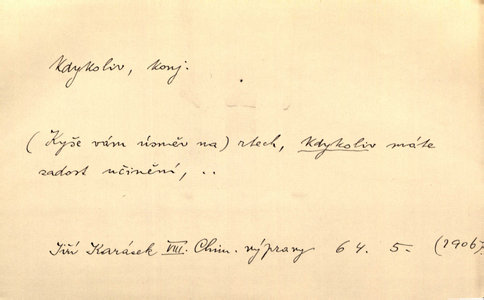 Kdykoliv, konj.
(Kyše vám úsměv na) rtech, Kdykoliv máte
zadost učinění, ..
Jiří Karásek VIII. Chim. výpravy 64. 5. (1906).